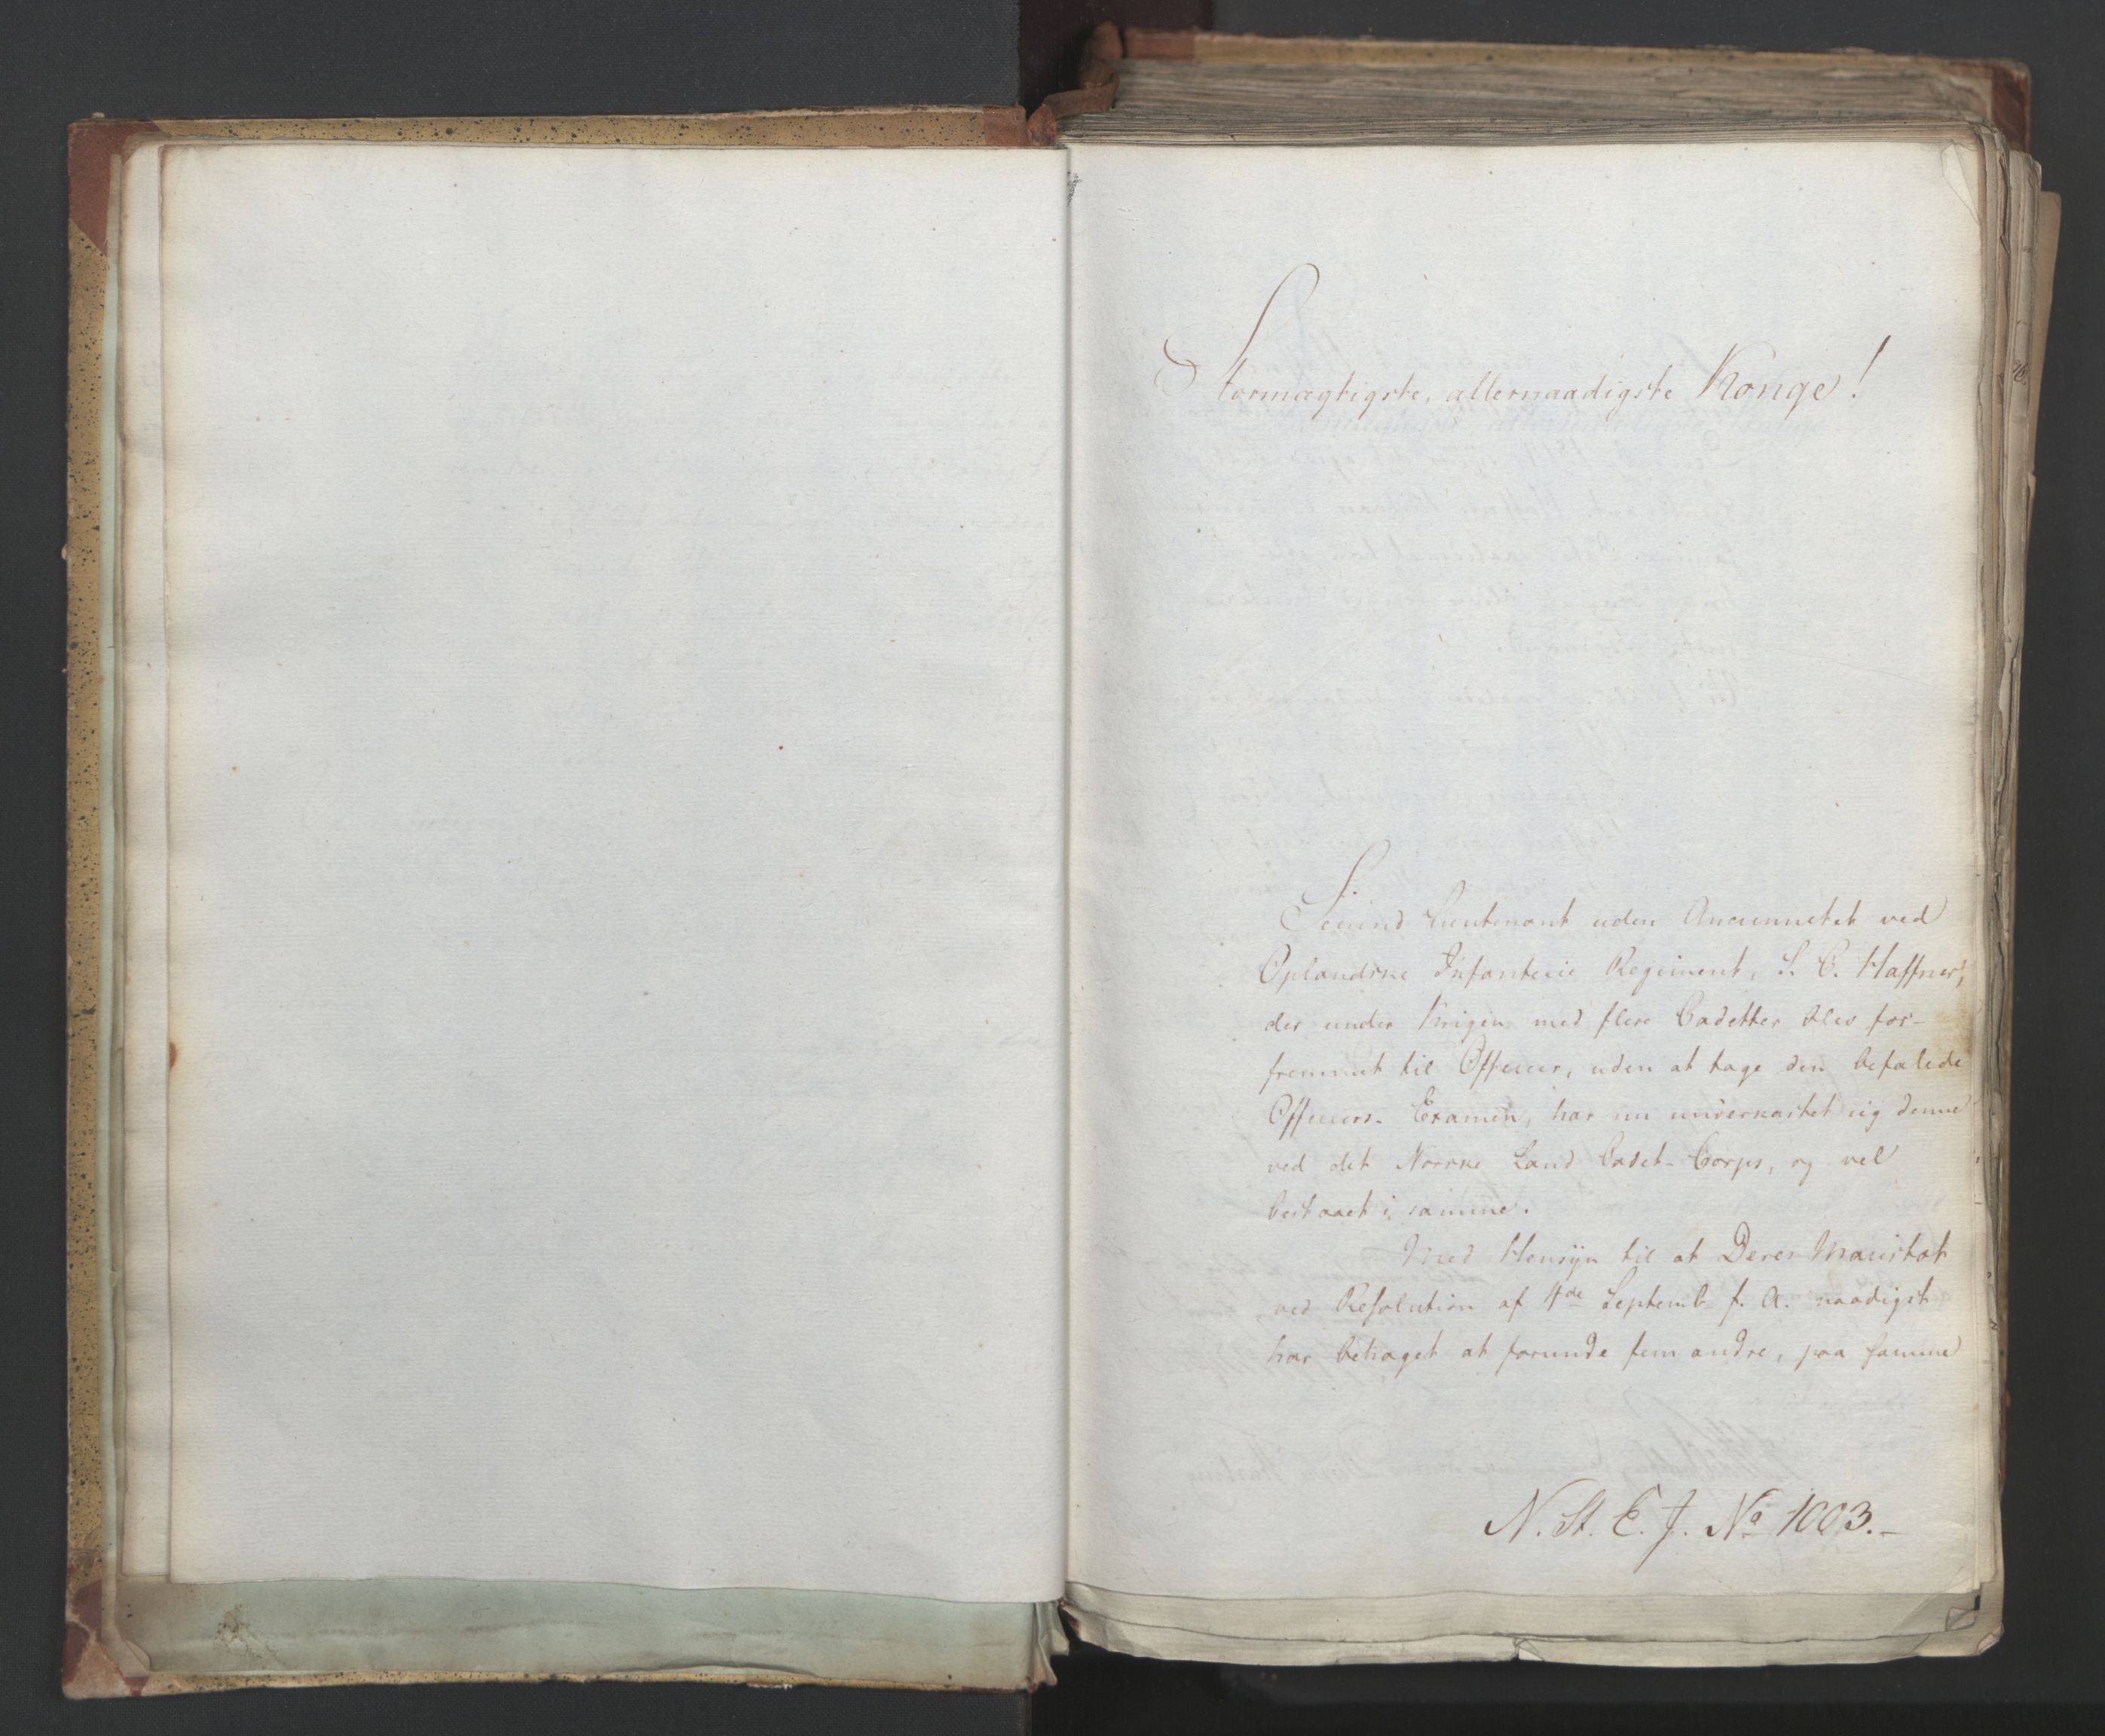 Stormægtigste, allernaadigste Konge!
Second Lieutenant uden Anciennitet ved
Oplandske Infanterie Regiment, S. C. Haffner,
der under Krigen med flere Cadetter blev for-
fremmet til Officeer, uden at tage den befalede
Officeers-Examen, har nu underkastet sig denne
ved det Norske Land Cadet-Corps, og vel
bestaaet i samme.
Med Hensyn til at Deres Maiestæt
ved Resolution af 4de Septemb. f. A. naadigst
har behaget at forunde fem andre, paa samme
N. St. E. J. No 1003.-